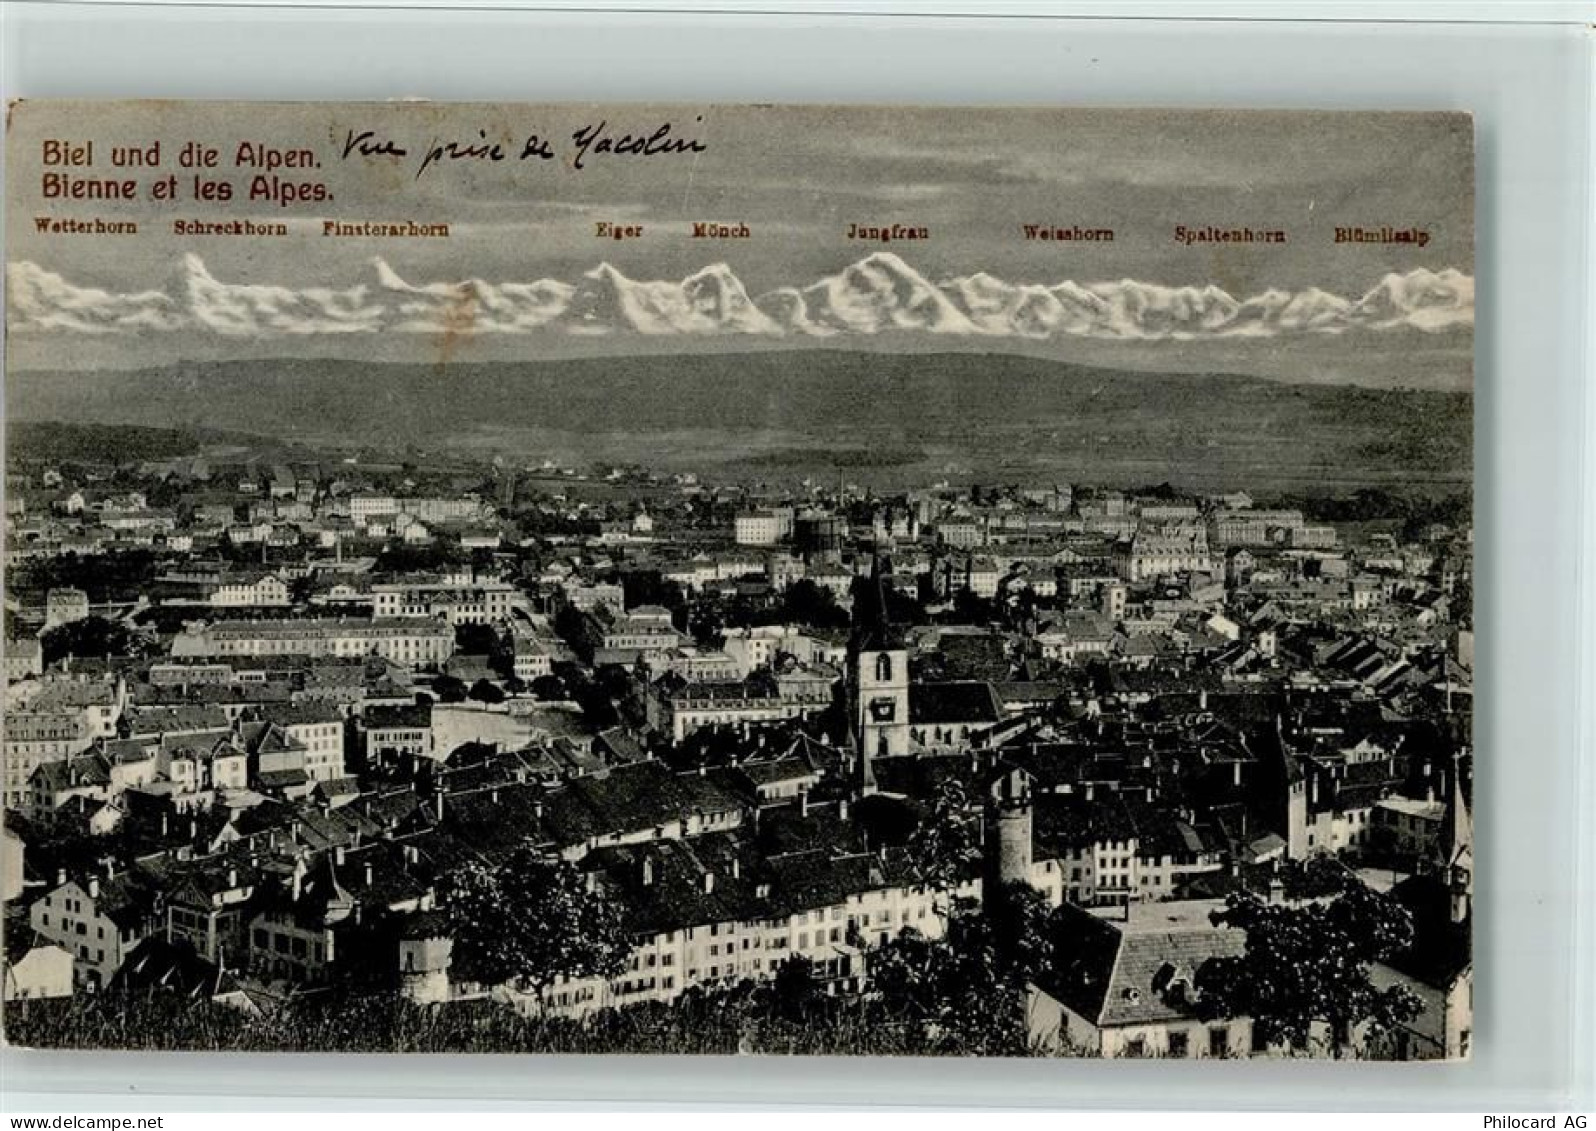 Biel und die Alpen. Vue prise de Macolin
Bienne et les Alpes.
Wetterhorn Schreckhorn Finsterarhorn Eiger Mönch Jungfrau Weisshorn Spaltenhorn Blümlisalp
Philocard AG